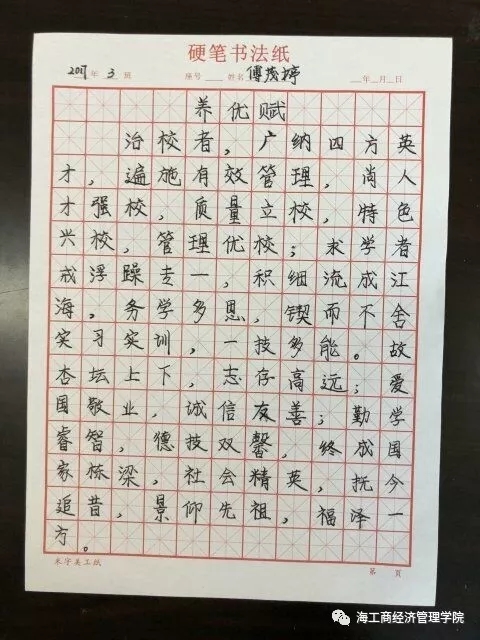 硬笔书法纸
2017年 3 班 座号 姓名 傅茂婷 年 月 日
养优赋
治校者，广纳四方英
才，遍施有效管理，尚人
才强校，质量立校，特色
兴校，管理优校；求学者
戒浮躁专一，积细流成江
海。务学多思，锲而不舍
实习实训，一技多能。故
杏坛上下，志存高远；爱
国敬业，诚信友善；勤学
睿智，德技双馨，终成国
家栋梁，社会精英，抚今
追昔，景仰先祖，福泽一
方。
米字美工纸 第 页
海工商经济管理学院